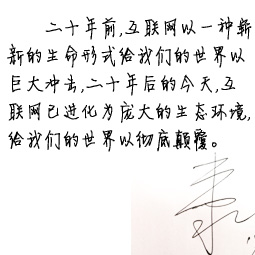 二十年前,互联网以一种崭
新的生命形式给我们的世界以
巨大冲击,二十年后的今天,互
联网已进化为庞大的生态环境,
给我们的世界以彻底颠覆。